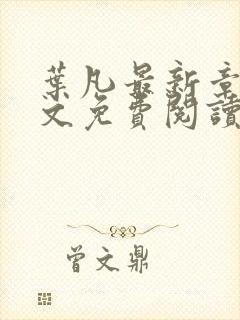 葉凡最新章
文免費閱讀
曾文鼎